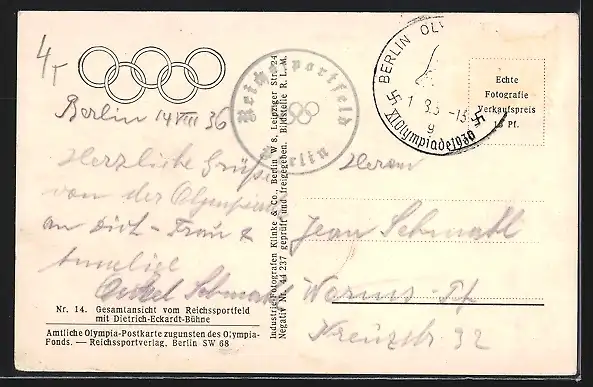 4
Berlin 14 VIII 36
Herzliche Grüße
von der Olympiade
an Dich - Frau &
Onkel
Nr. 14. Gesamtansicht vom Reichssportfeld
mit Dietrich-Eckardt-Bühne
Amtliche Olympia-Postkarte zugunsten des Olympia-
Fonds. — Reichssportverlag, Berlin SW 68
Reichssportfeld
Berlin
Industrie-Fotografen Klinke & Co., Berlin W 8, Leipziger Str. 24
Negativ Nr. 44 237 geprüft und freigegeben. Bildstelle R. L. M.
BERLIN
XI. Olympiade 1936
g
Echte
Fotografie
Verkaufspreis
15 Pf.
Herrn
Jean
Worms - Pf
Kreuzstr. 32